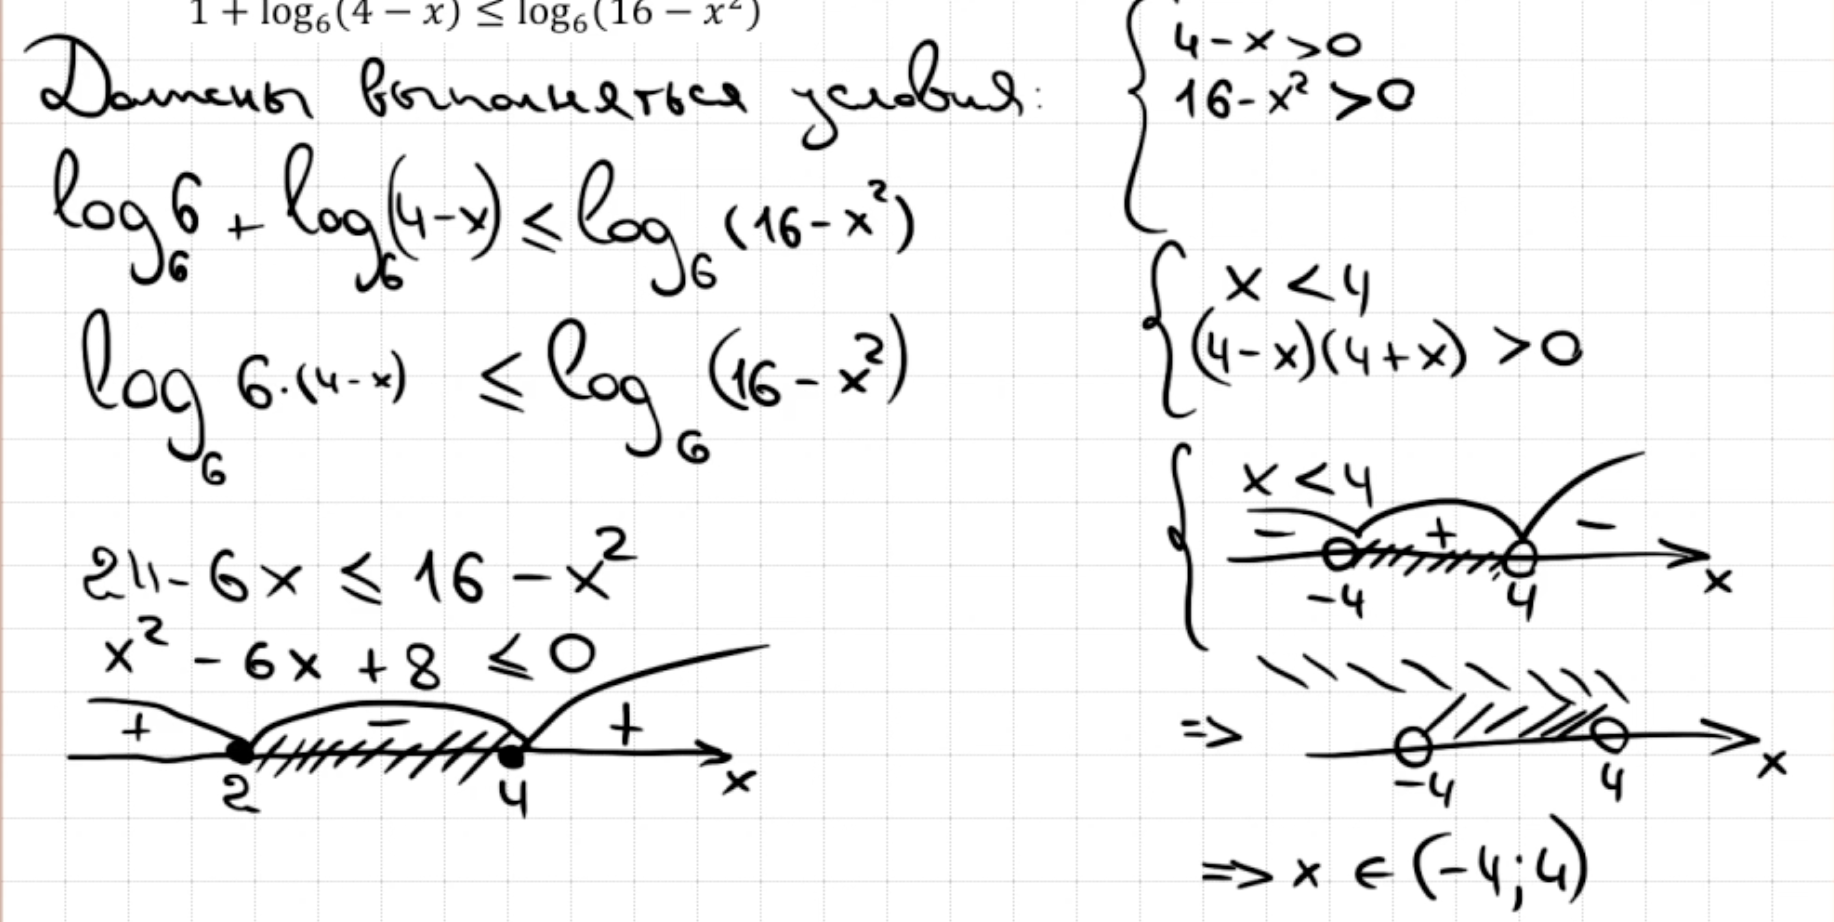 1 + log₆(4 − x) ≤ log₆(16 − x²)
Должны выполняться условия:
log₆6 + log₆(4-x) ≤ log₆(16-x²)
log₆ 6·(4-x) ≤ log₆(16-x²)
24-6x ≤ 16-x²
x² - 6x + 8 ≤ 0
+ − +
2 4 x
{ 4-x>0
16-x²>0
{ x<4
(4-x)(4+x) >0
{ x<4
− + −
-4 4 x
=>
-4 4 x
=> x ∈ (-4;4)